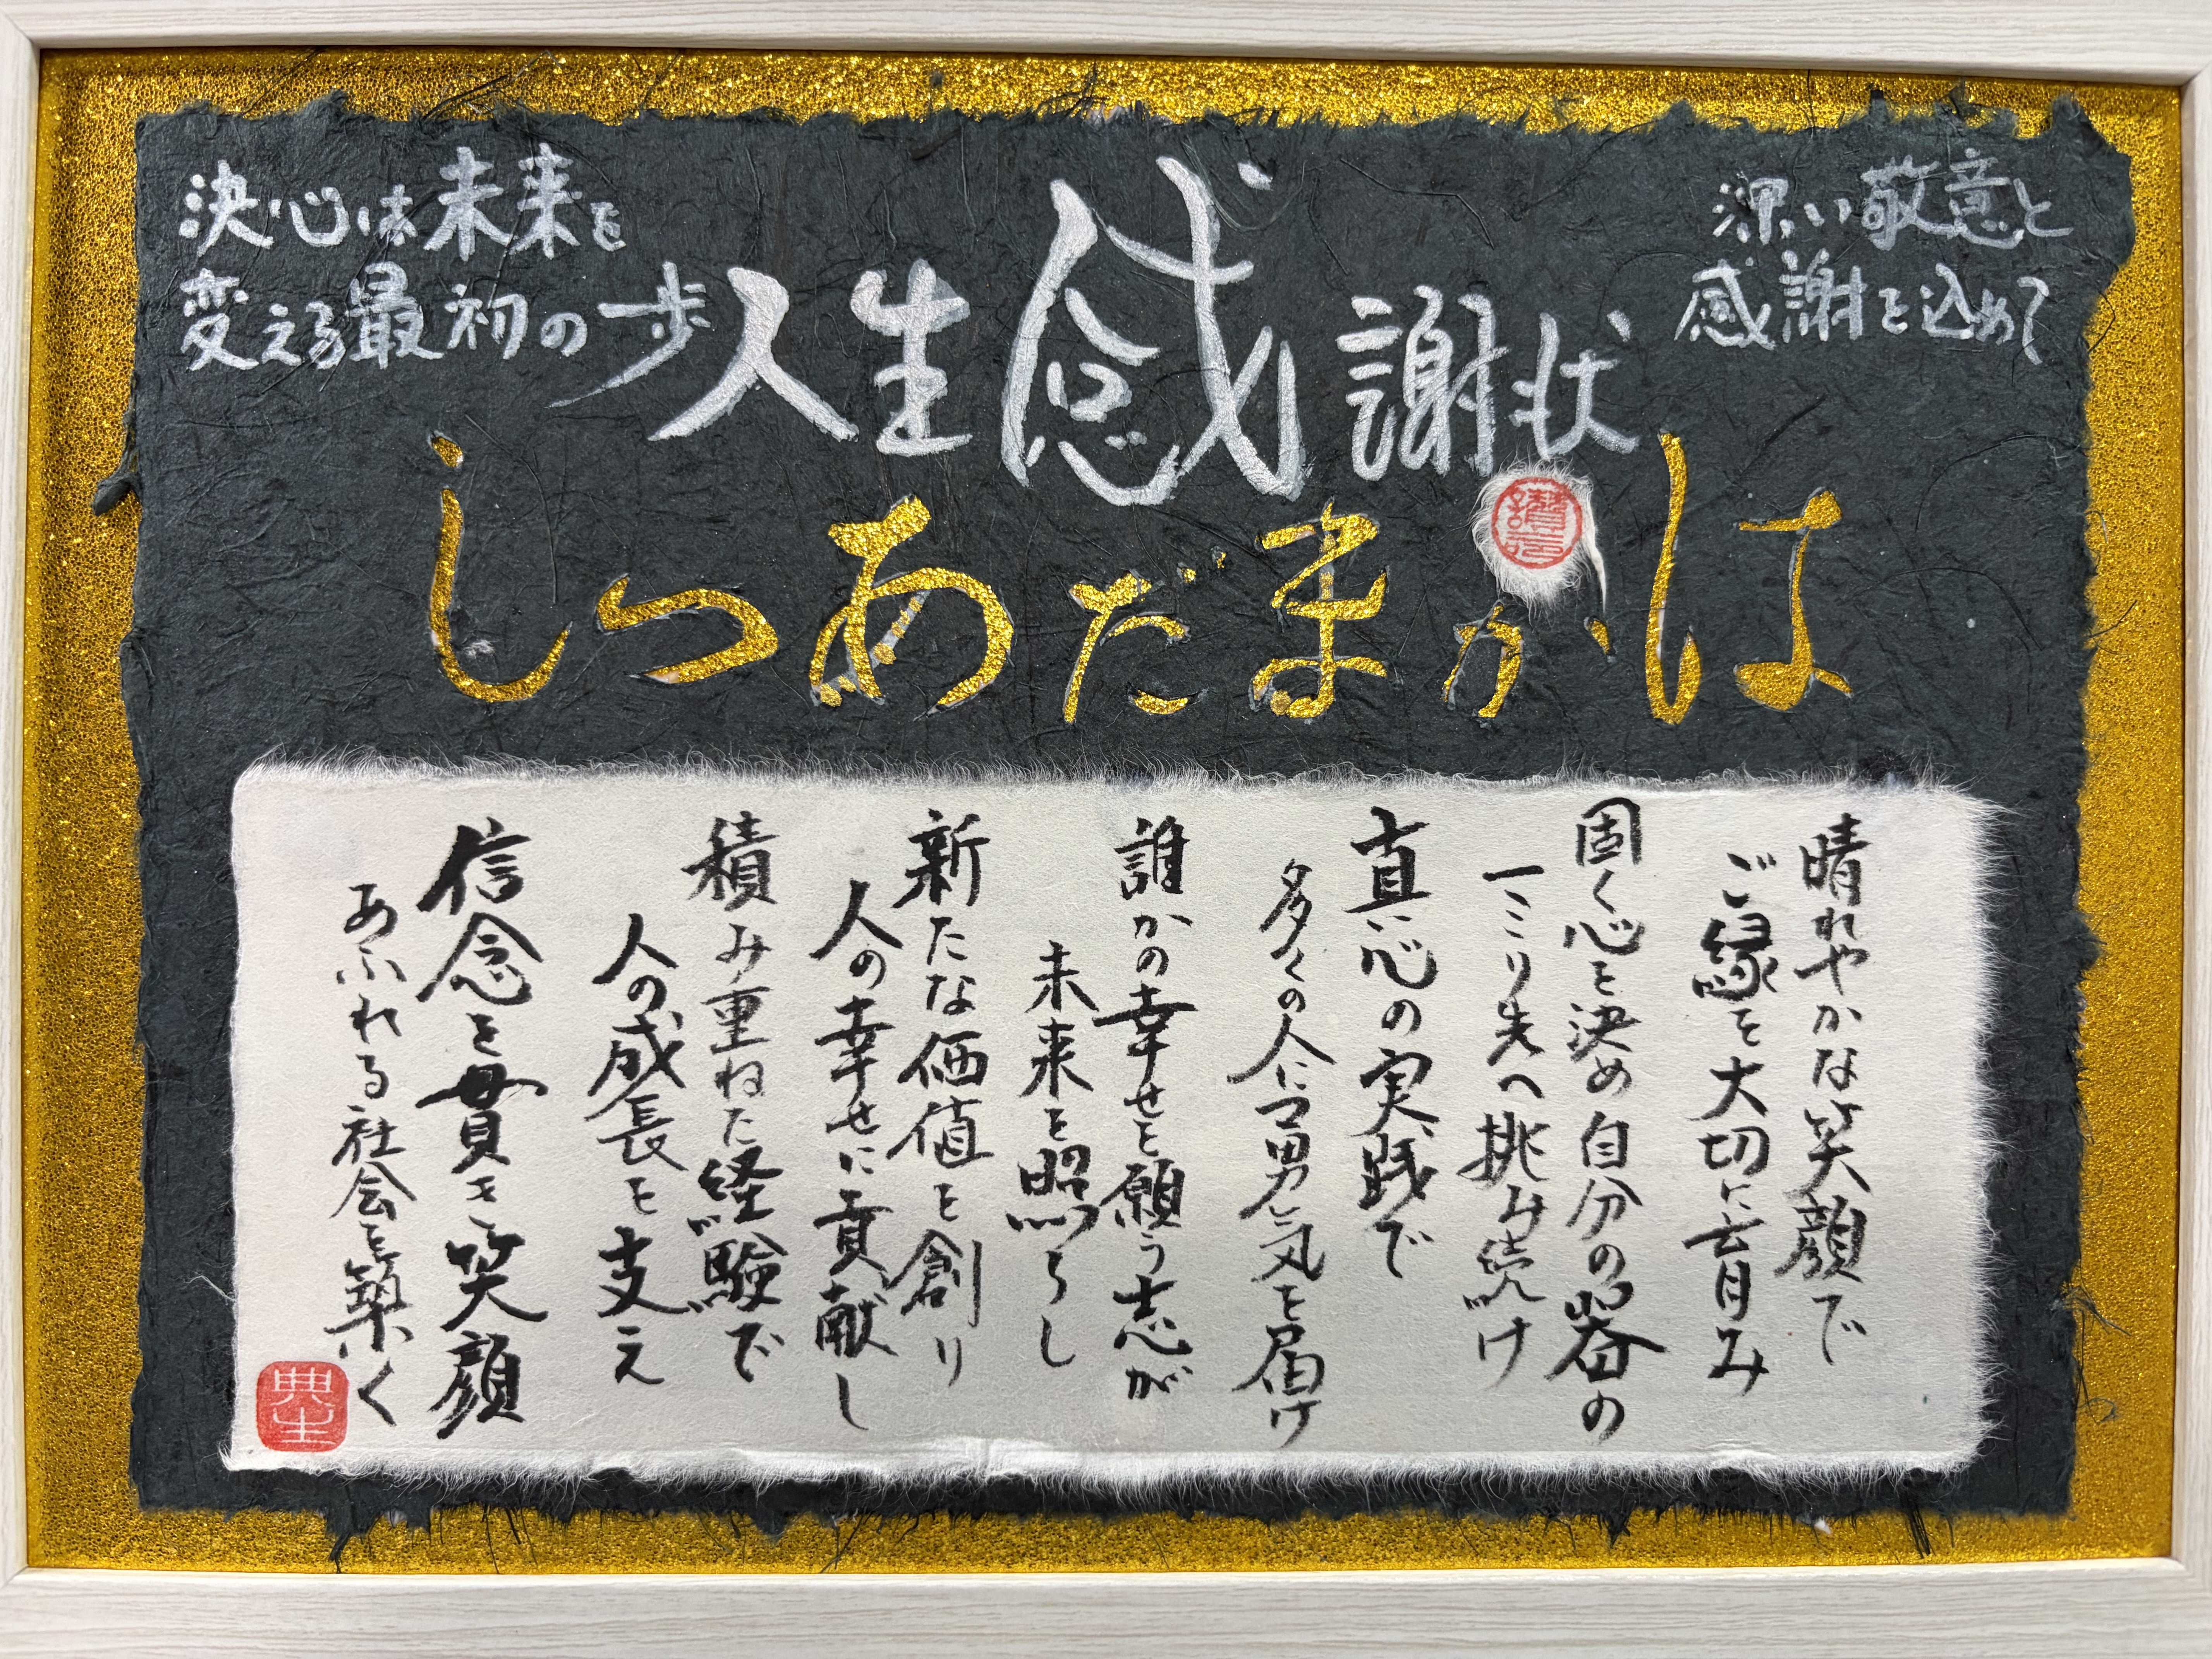 決心は未来を
変える最初の一歩
人生感謝状
深い敬意と
感謝を込めて
はかまだあつし
晴れやかな笑顔で
ご縁を大切に育み
固く心を決め自分の器の
一ミリ先へ挑み続け
真心の実践で
多くの人に勇気を届け
誰かの幸せを願う志が
未来を照らし
新たな価値を創り
人の幸せに貢献し
積み重ねた経験で
人の成長を支え
信念を貫き笑顔
あふれる社会を築く
典生